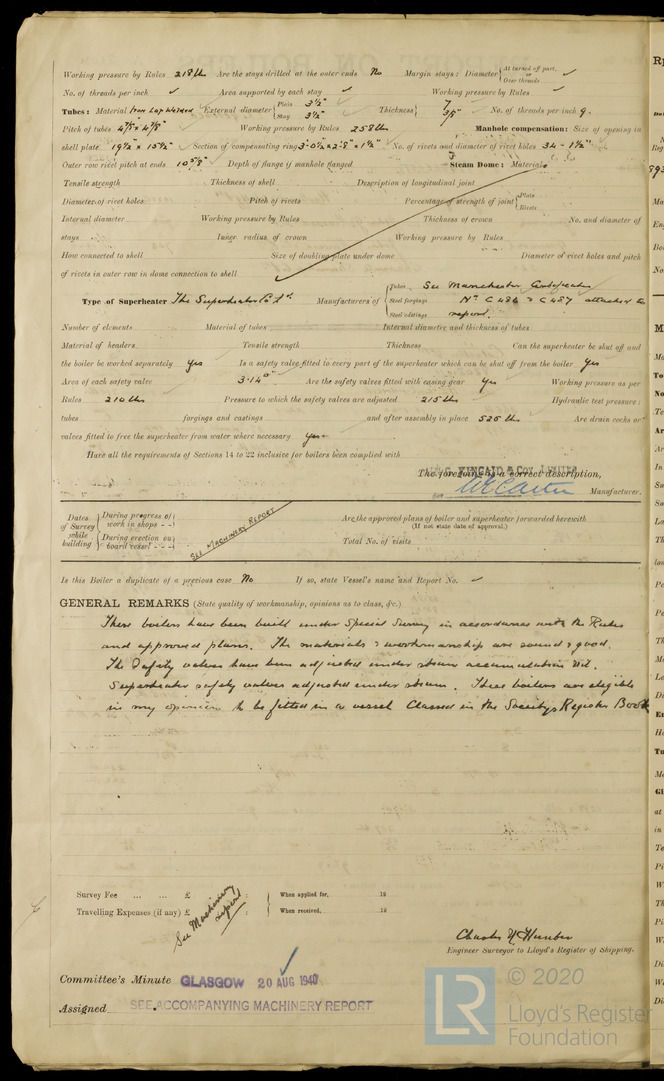 Working pressure by Rules 218 lbs Are the stays drilled at the outer ends No Margin stays: Diameter { At turned off part, Over threads ✓
No. of threads per inch ✓ Area supported by each stay ✓ Working pressure by Rules ✓
Tubes: Material Iron Lap Welded External diameter { Plain 3½" Stay 3½" Thickness { 7 No. of threads per inch 9.
Pitch of tubes Working pressure by Rules 258 lbs Manhole compensation: Size of opening in
shell plate 19½" x 15½" Section of compensating ring No. of rivets and diameter of rivet holes 34 - 1½"
Outer row rivet pitch at ends 10⅝" Depth of flange if manhole flanged Steam Dome: Material
Tensile strength Thickness of shell Description of longitudinal joint
Diameter of rivet holes Pitch of rivets Percentage of strength of joint { Plate Rivets
Internal diameter Working pressure by Rules Thickness of crown No. and diameter of
stays Inner radius of crown Working pressure by Rules
How connected to shell Size of doubling plate under dome Diameter of rivet holes and pitch
of rivets in outer row in dome connection to shell ✓
Type of Superheater The Superheater Co Ltd. Manufacturers of { Tubes Steel forgings Steel castings See Manchester Certificates Nos C 486 & C 487 attached to report.
Number of elements Material of tubes Internal diameter and thickness of tubes
Material of headers Tensile strength Thickness Can the superheater be shut off and
the boiler be worked separately Yes Is a safety valve fitted to every part of the superheater which can be shut off from the boiler Yes
Area of each safety valve 3.14 Are the safety valves fitted with easing gear Yes Working pressure as per
Rules 210 lbs Pressure to which the safety valves are adjusted 215 lbs Hydraulic test pressure:
tubes forgings and castings and after assembly in place 525 lbs Are drain cocks or
valves fitted to free the superheater from water where necessary Yes
Have all the requirements of Sections 14 to 22 inclusive for boilers been complied with
KINCAID & Coy. LIMITED
The foregoing is a correct description,
Manufacturer.
Dates of Survey while building { During progress of work in shops - - During erection on board vessel - - - SEE MACHINERY REPORT
Are the approved plans of boiler and superheater forwarded herewith
(If not state date of approval.)
Total No. of visits
Is this Boiler a duplicate of a previous case No If so, state Vessel's name and Report No. ✓
GENERAL REMARKS (State quality of workmanship, opinions as to class, &c.)
These boilers have been built under Special Survey in accordance with the Rules
and approved plans. The materials & workmanship are sound & good.
The Safety valves have been adjusted under steam accumulation
Superheater safety valves adjusted under steam. These boilers are eligible
in my opinion to be fitted in a vessel Classed in the Society's Register Book
Survey Fee ... ... £ : : When applied for, 19
Travelling Expenses (if any) £ : : When received, 19
See Machinery report
Engineer Surveyor to Lloyd's Register of Shipping.
Committee's Minute GLASGOW 20 AUG 1940
Assigned SEE ACCOMPANYING MACHINERY REPORT
LR
© 2020
Lloyd's Register
Foundation